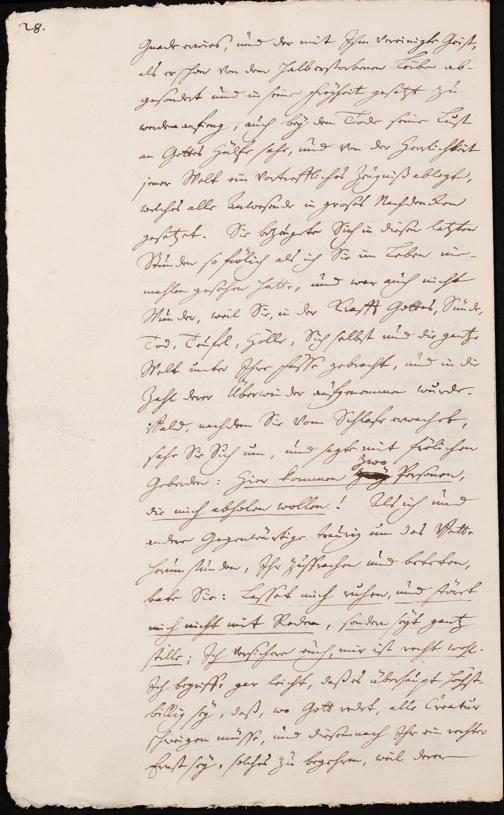 28.
Gnade erwies, und der mit Ihm vereinigte Geist,
als er schon von dem halb erstorbenen Leibe ab-
gesondert und in seine Freyheit gesetzt zu
werden anfieng, auch bey dem Tode seine Lust
an Gottes Hülfe sahe, und von der Herrlichkeit
jener Welt ein vortreffliches Zeugniß ablegte,
welches alle Anwesende in großes Nachdenken
gesetzet. Sie bezeugte Sich in diesen letzten
Stunden so frölich als ich Sie im Leben nie-
mahlen gesehen hatte, und war auch nicht
Wunder, weil Sie, in der Krafft Gottes, Sünde,
Tod, Teufel, Hölle, Sich selbst und die gantze
Welt unter Ihre Füsse gebracht, und in die
Zahl derer Überwinder aufgenommen wurde.
Bald, nachdem Sie vom Schlafe erwachet,
sahe Sie Sich um, und sagte mit frölichen
Geberden: Hier kommen zwo Personen,
die mich abholen wollen! Als ich und
andere Gegenwärtige traurig um das Bette
herum stunden, Ihr zusprachen und beteten,
bate Sie: Lasset mich ruhen, und störet
mich nicht mit Reden, sondern seyt gantz
stille; Ich versichere euch, mir ist recht wohl.
Ich begriffe gar leicht, daß es überhaupt höchst-
billig sey, daß, wo Gott redet, alle Creatur
schweigen müsse, und diesem nach Ihr ein rechter
Ernst sey, solches zu begehren, weil deren